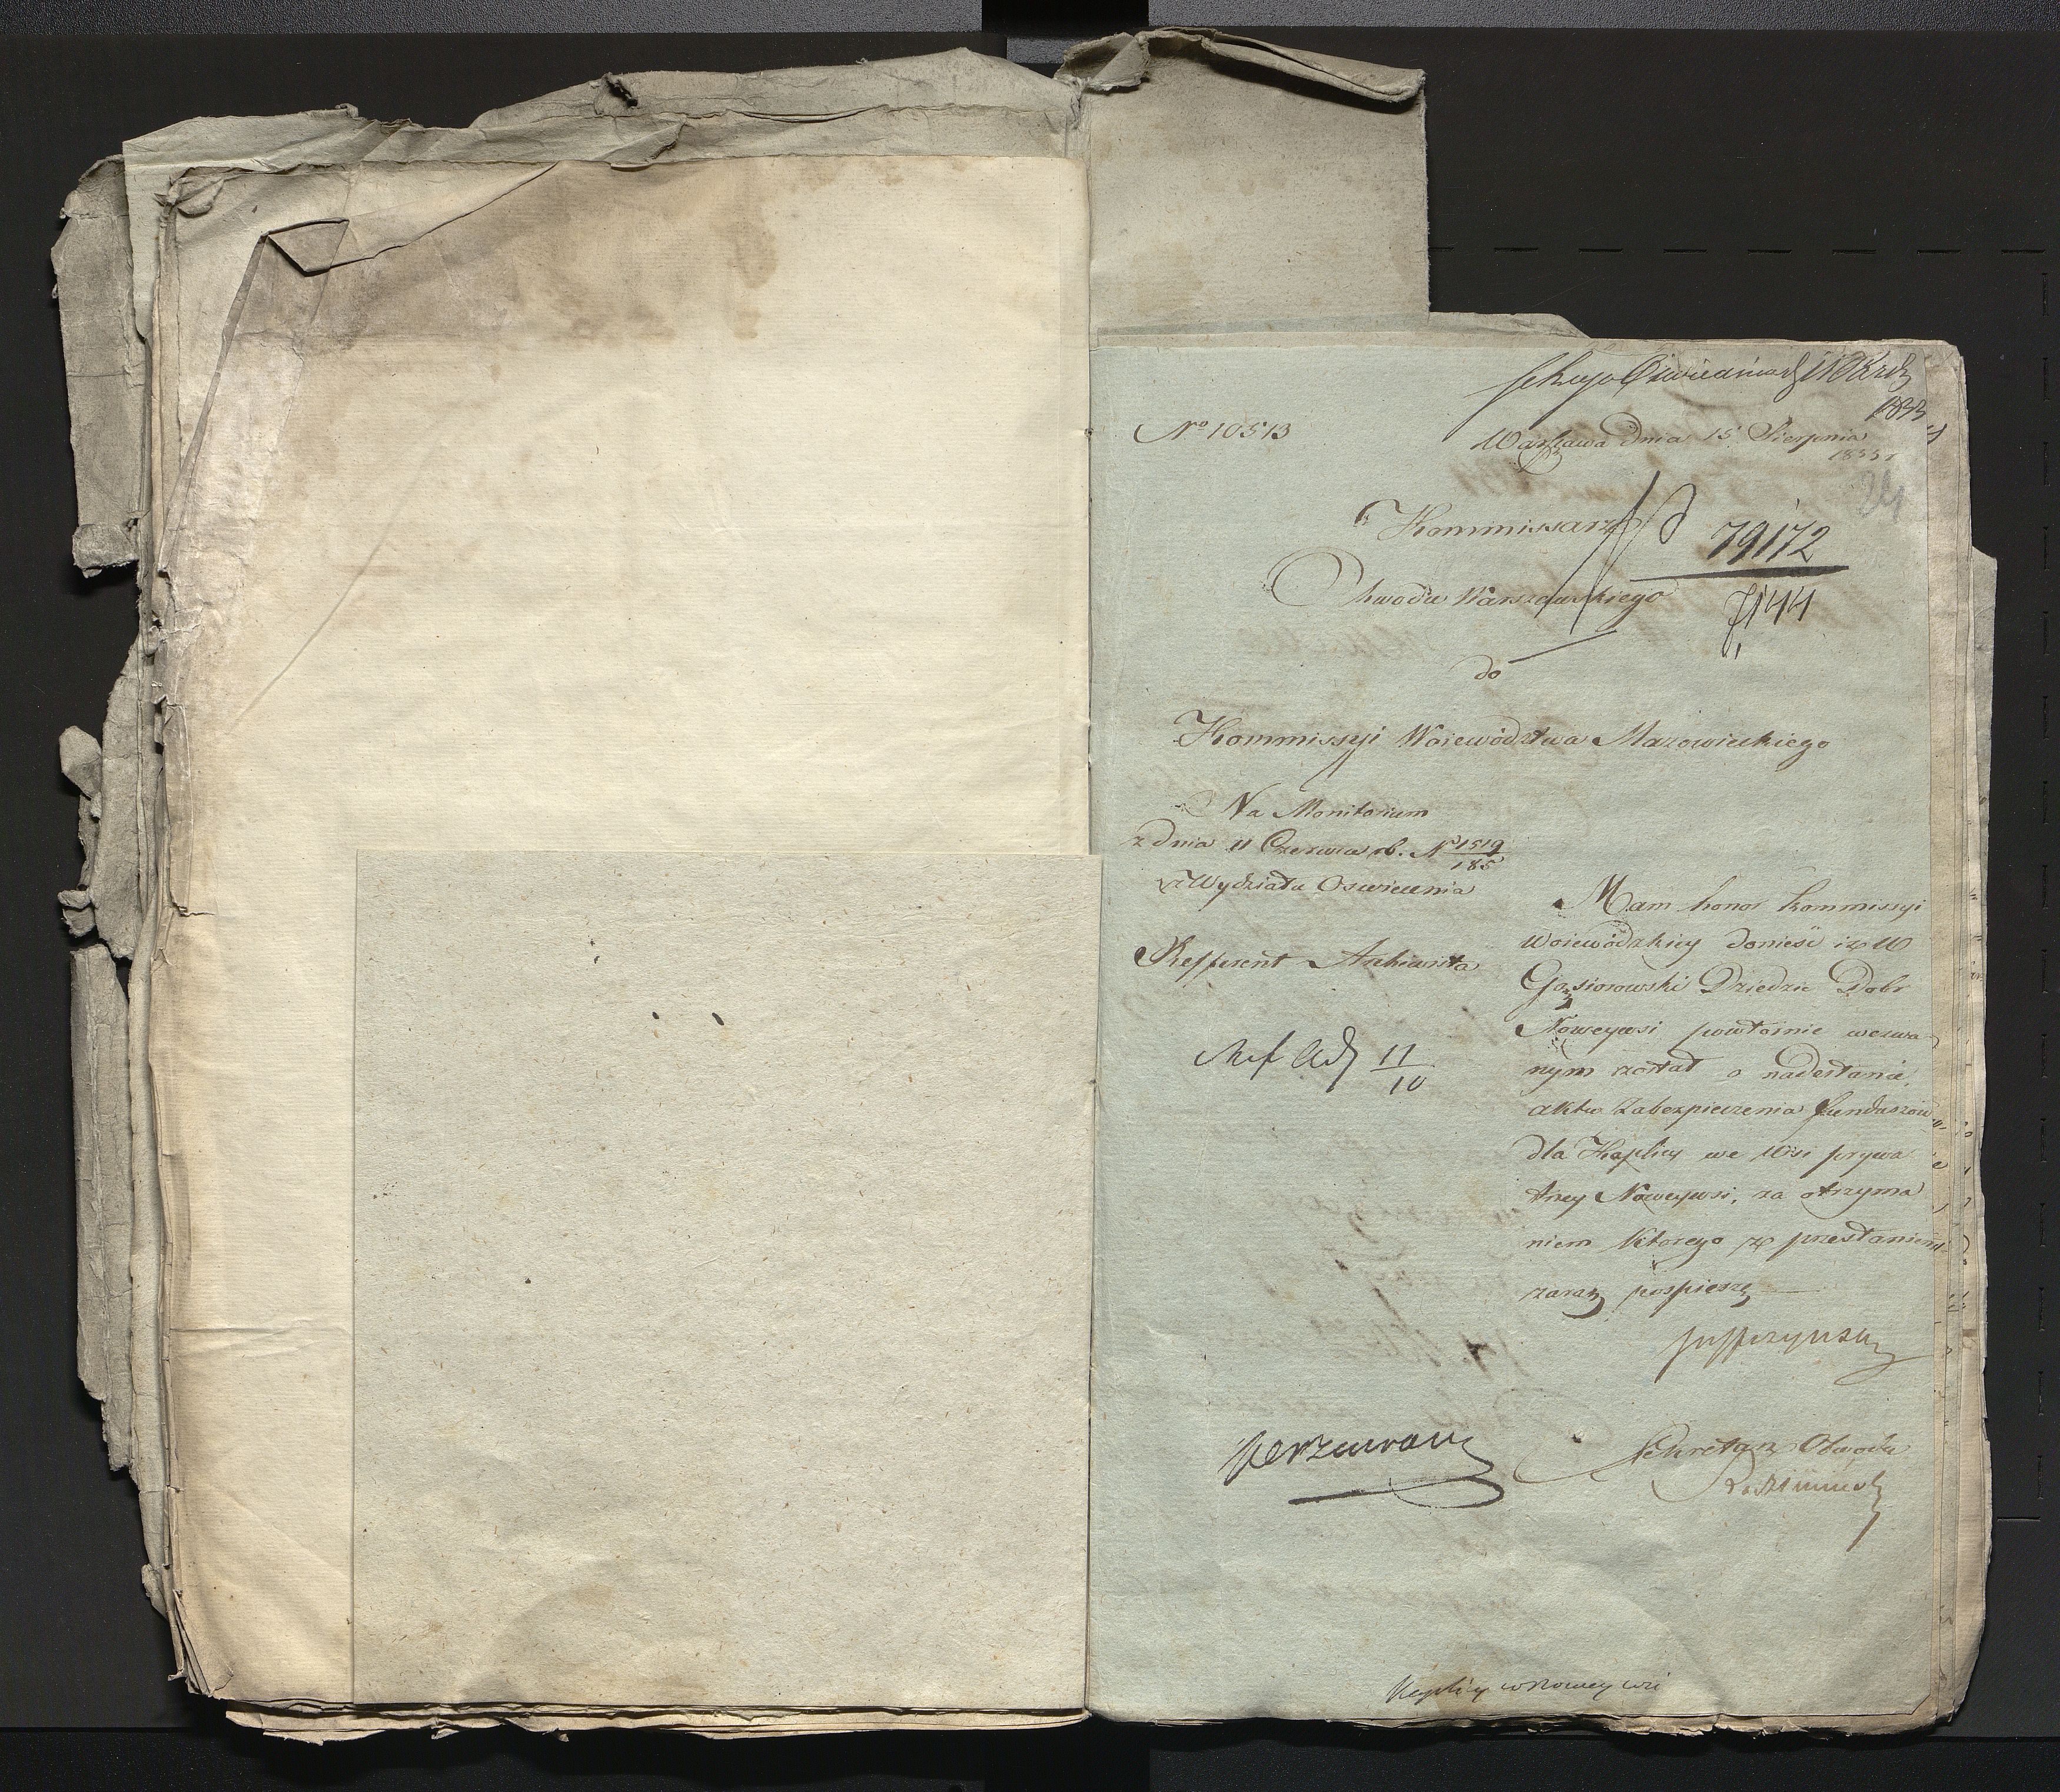 Sekcya Oswiecenia
1833
No 10513
Warszawa Dnia 15 Sierpnia
1833 r
24
Kommissarz
79172
Obwodu Warszawskiego
7,144
do
Kommissyi Woiewództwa Mazowieckiego
Na Monitorium
z Dnia 11 Czerwca rb. N 1519/185
z Wydziału Oswiecenia
Refferent Archiwista
Mam honor Kommissyi
Woiewódzkiey donieść iż W
Gąsiorowski Dziedzic Dobr
Noweywsi powtórnie wezwa-
nym został o nadesłanie
aktu Zabezpieczenia Funduszów
dla Kaplicy we Wsi prywa
tney Noweywsi, za otrzyma
niem którego z przesłaniem
zaraz pospieszę
Ref 11/10
Sekretarz Obwodu
Kaplicy w Nowey wsi